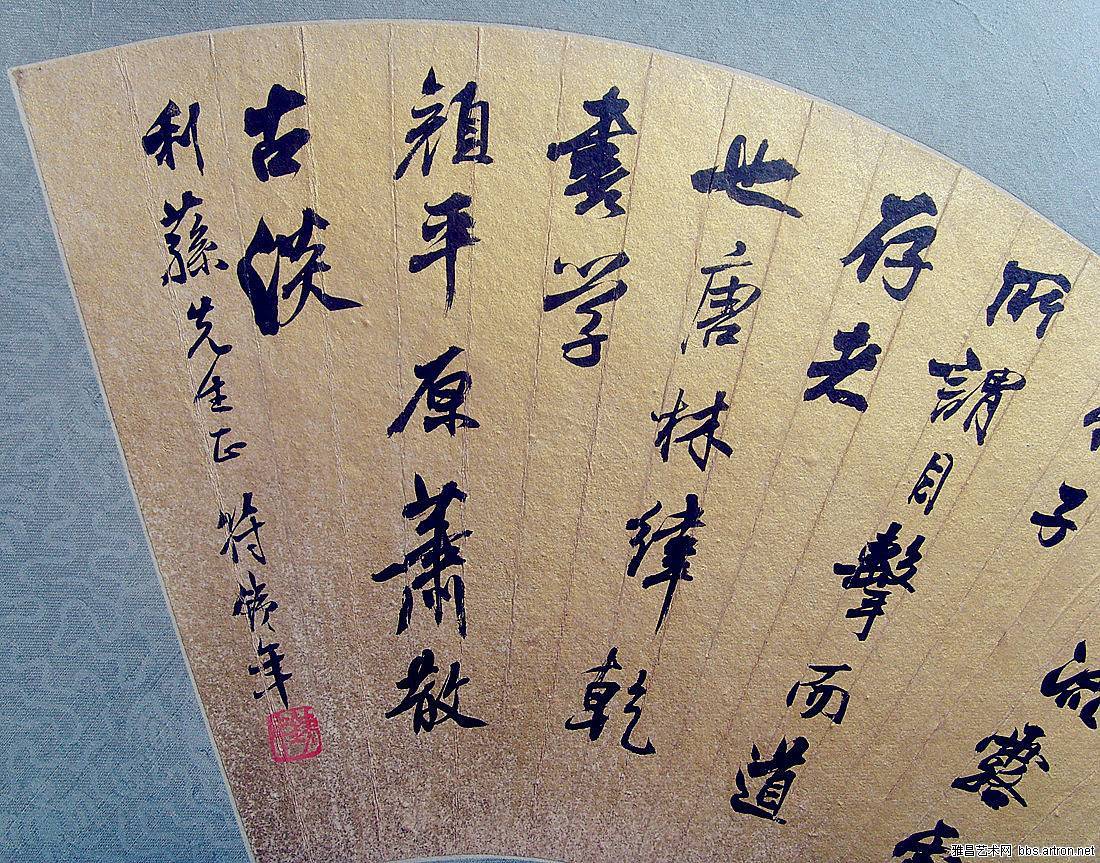 子
所謂目擊而道
存者
也唐林緯乾
書學
顏平原蕭散
古淡
利蓀先生正 符鐵年
雅昌艺术网 bbs.artron.net